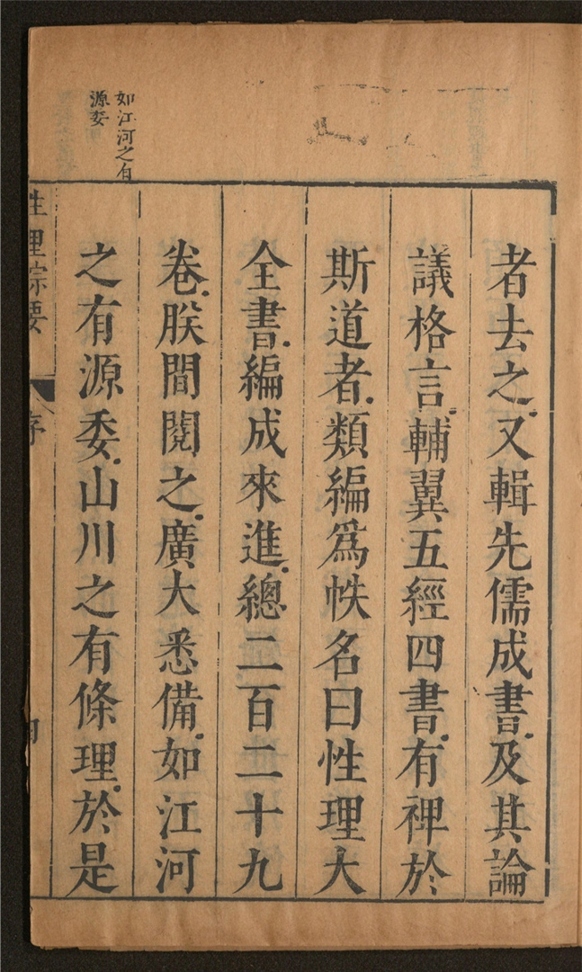 如江河之有
源委
者去之又輯先儒成書及其論
議格言輔翼五經四書有裨於
斯道者類編爲帙名曰性理大
全書編成來進總二百二十九
卷朕間閱之廣大悉備如江河
之有源委山川之有條理於是
性理綜要
序